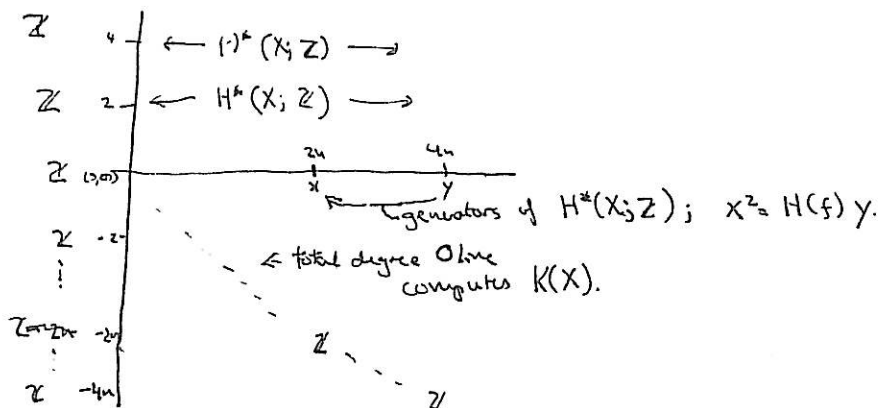 ℤ 4 ← (·)* (X; ℤ) →
ℤ 2 ← H*(X; ℤ) →
ℤ (0,0) 2n 4n
x y
generators of H*(X; ℤ); x² = H(f) y.
ℤ -2
← total degree 0 line
computes K(X).
-2n ℤ
ℤ -4n ℤ